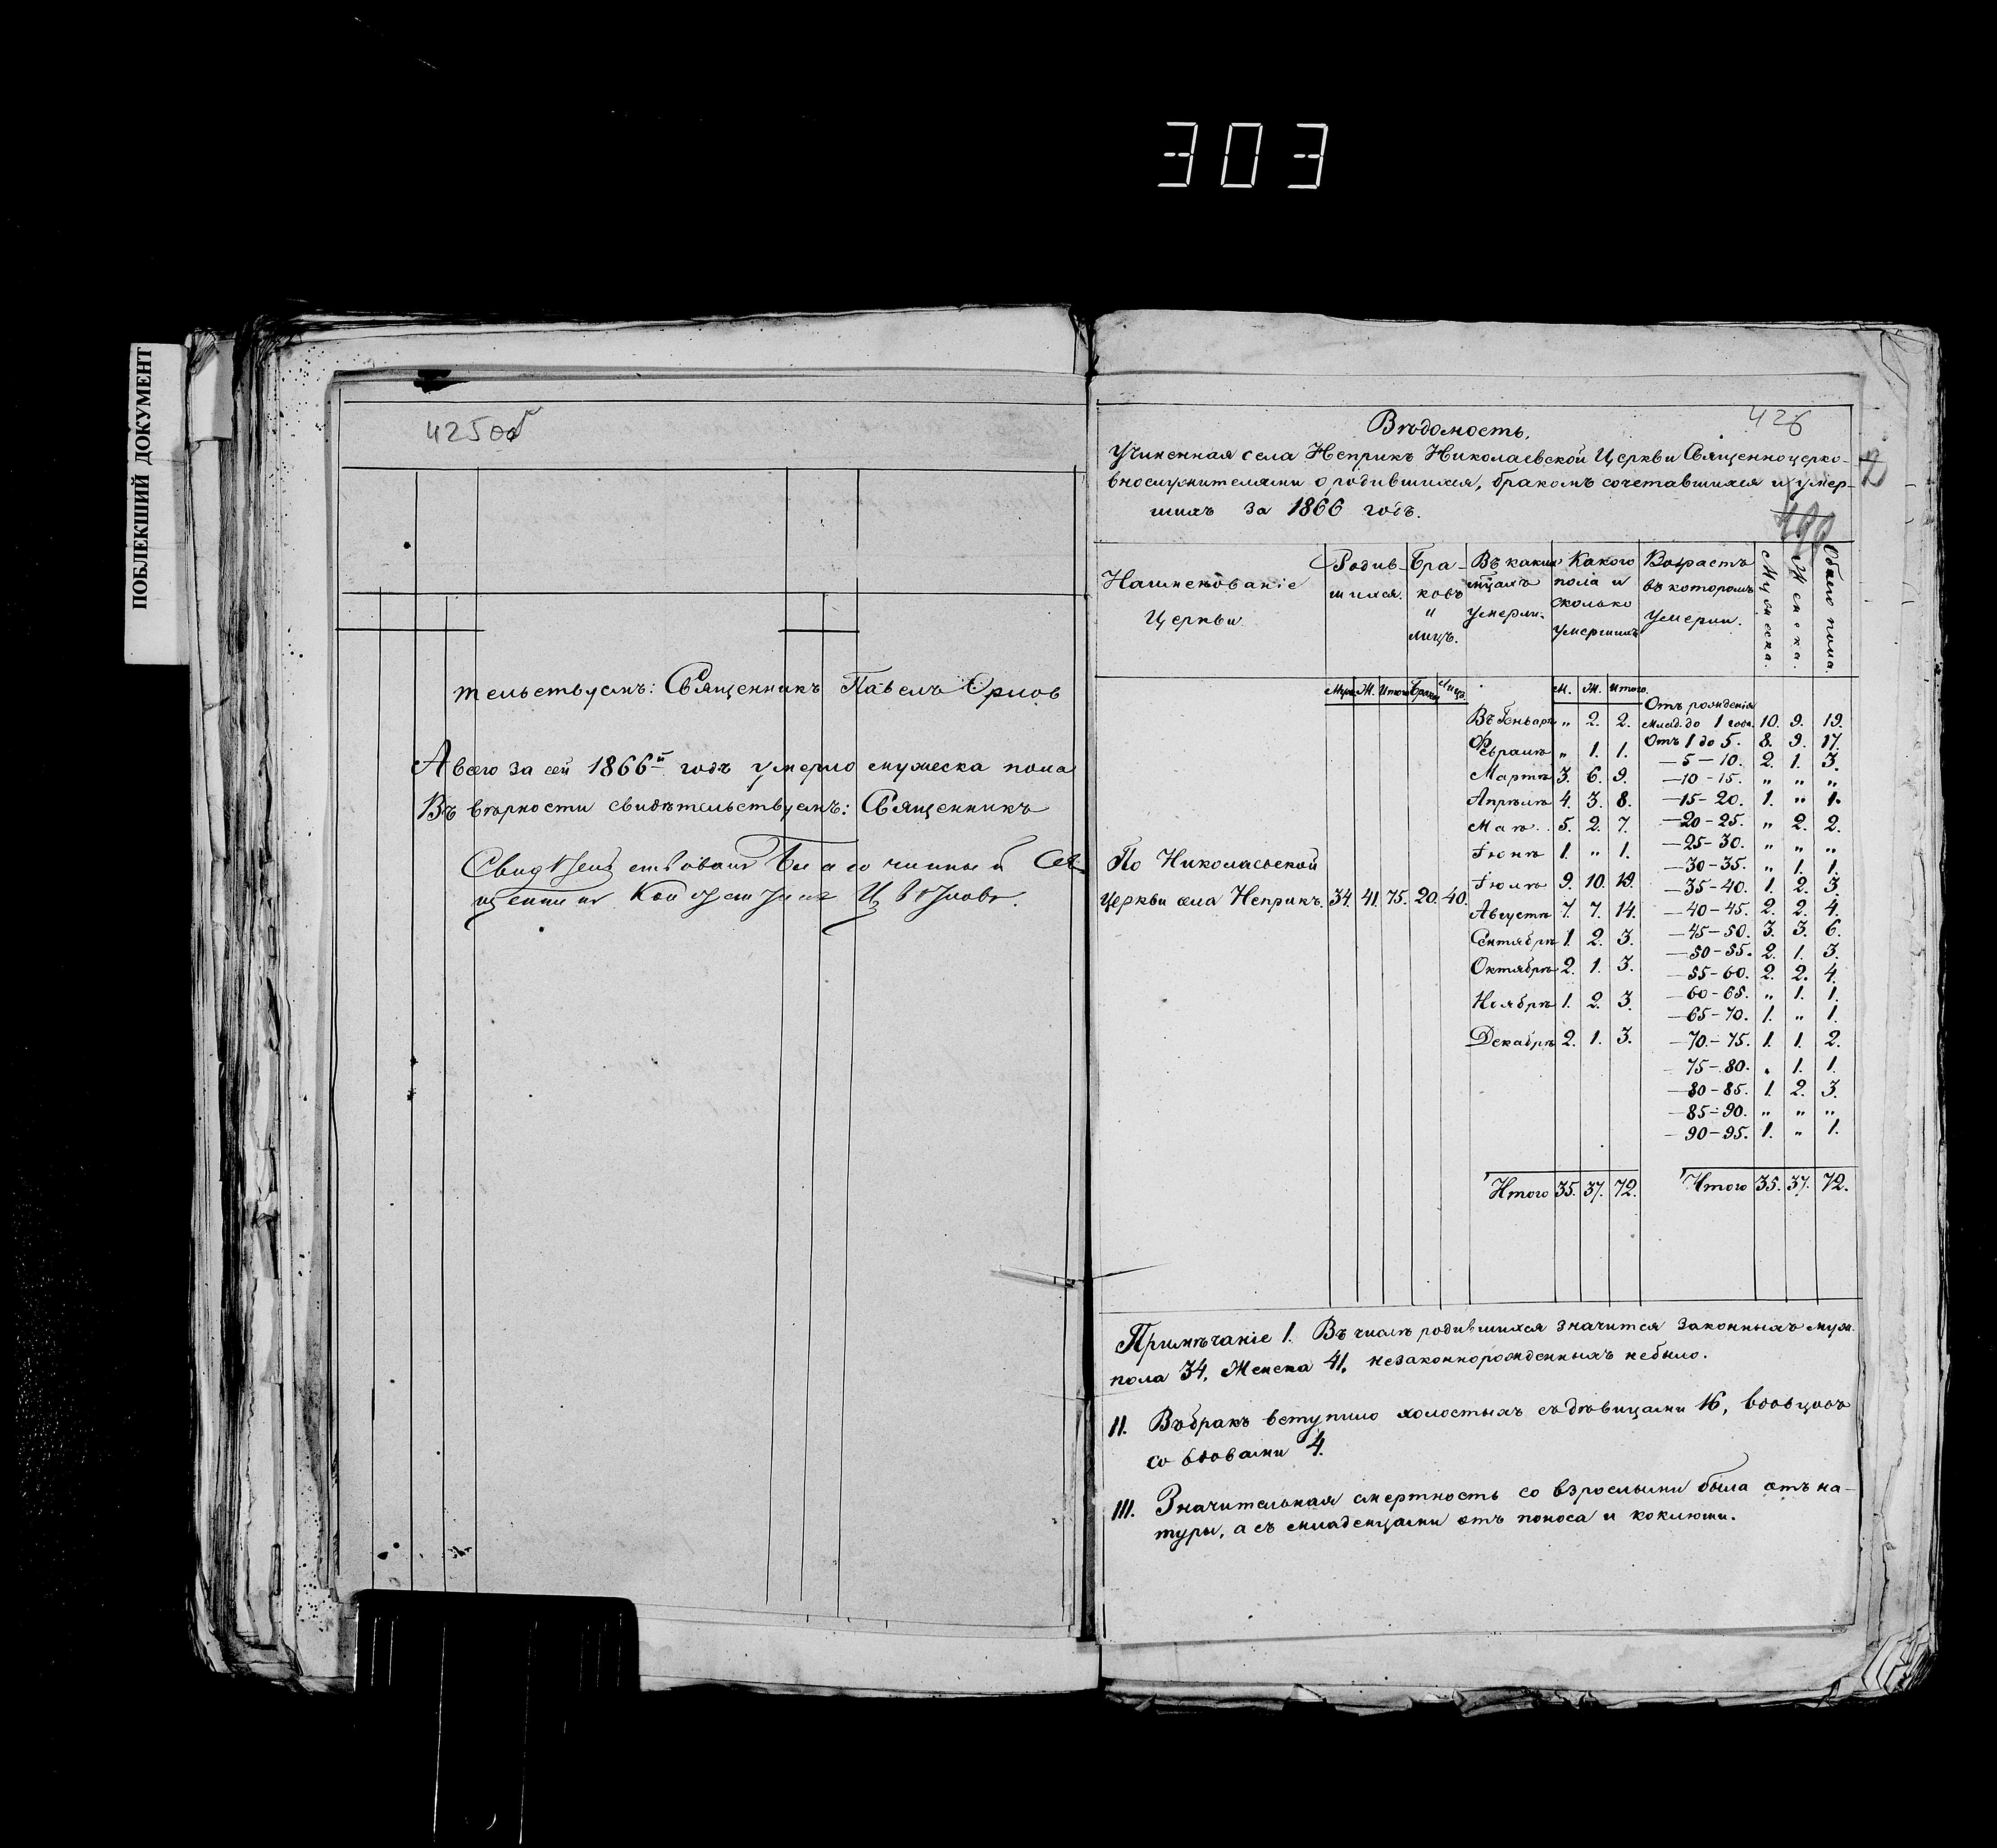 303
ПОБЛЕКШИЙ ДОКУМЕНТ
425об
тельствуемъ: Священникъ Павелъ Орлов
А всего за сей 1866й годъ умерло мужеска пола
Въ верности свидѣтельствуемъ: Священникъ
Свидѣтельствовалъ Благочинный Свя-
щенникъ Константинъ Цвѣтковъ.
426
Вѣдомость,
Учиненная села Неприкъ Николаевской Церкви Священноцерко-
внослужителями о родившихся, бракомъ сочетавшихся и умер-
шихъ за 1866 годъ.
Наименованіе Церкви.
Родив-шихся.
Бра-ковъ и лицъ.
Въ какихъ мѣсяцахъ умерли.
Какого пола и сколько умершихъ
Возрастъ въ которомъ умерли.
Мужеска.
Женска.
Обоего пола.
Муж. Ж. Итого Браки Лицъ. М. Ж. Итого.
По Николаевской
Церкви села Неприкъ. 34. 41. 75. 20. 40.
Въ Генварѣ „ 2. 2.
Февралѣ „ 1. 1.
Мартѣ 3. 6. 9.
Апрѣлѣ 4. 3. 8.
Маѣ.. 5. 2. 7.
Іюнѣ 1. „ 1.
Іюлѣ 9. 10. 19.
Августѣ 7. 7. 14.
Сентябрѣ 1. 2. 3.
Октябрѣ 2. 1. 3.
Ноябрѣ 1. 2. 3.
Декабрѣ 2. 1. 3.
Итого 35. 37. 72.
Отъ рожденія
млад. до 1 года. 10. 9. 19.
Отъ 1 до 5. 8. 9. 17.
— 5 — 10. 2. 1. 3.
— 10 - 15. „ „ „
— 15 - 20. 1. „ 1.
— 20 - 25. „ 2. 2.
— 25 - 30. „ „ „
— 30 - 35. „ 1. 1.
— 35 - 40. 1. 2. 3.
— 40 - 45. 2. 2. 4.
— 45 - 50. 3. 3. 6.
— 50 - 55. 2. 1. 3.
— 55 - 60. 2. 2. 4.
— 60 - 65. „ 1. 1.
— 65 - 70. 1. „ 1.
— 70. - 75. 1. 1. 2.
75 - 80. „ 1. 1.
— 80 - 85. 1. 2. 3.
— 85 - 90. „ „ „
— 90 - 95. 1. „ 1.
Итого 35. 37. 72.
Примѣчаніе I. Въ числѣ родившихся значится законныхъ муж.
пола 34, Женска 41, незаконнорожденныхъ небыло.
II. Въ бракъ вступило холостыхъ съ дѣвицами 16, вдовцовъ
со вдовами 4.
III. Значительная смертность со взрослыми была отъ на-
туры, а съ младенцами отъ поноса и коклюши.